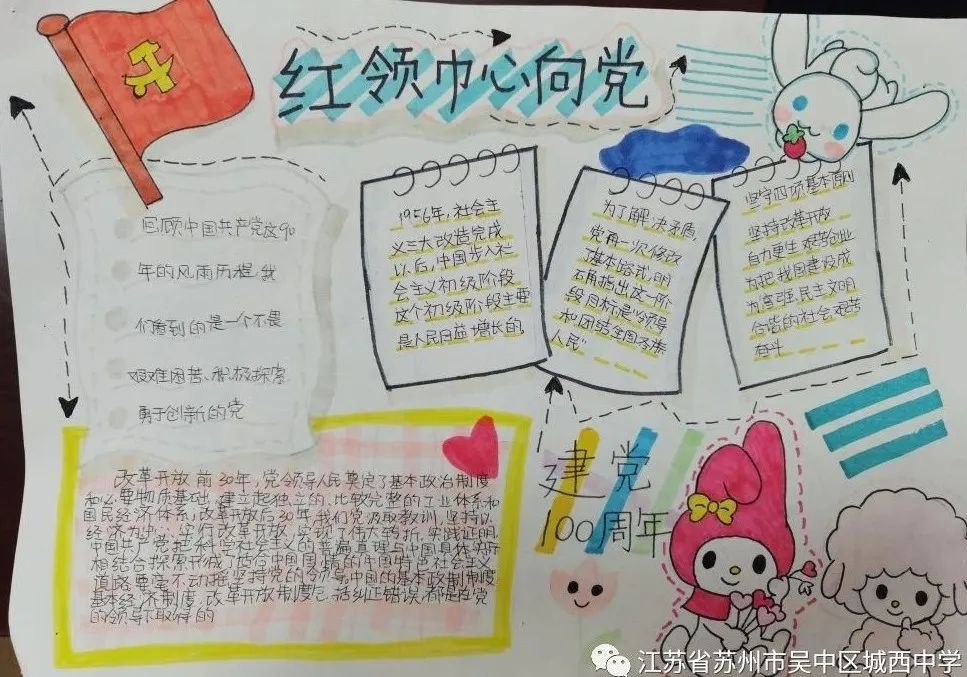 红领巾心向党
回顾中国共产党这90
年的风雨历程,我
们看到的是一个不畏
艰难困苦、积极探索
勇于创新的党
1956年,社会主
义三大改造完成
以后,中国步入社
会主义初级阶段
这个初级阶段主要
是人民日益增长的
为了解决矛盾,
党再一次修改
基本路线,明
确指出这一阶
段目标是"领导
和团结全国各族
人民"
坚守四项基本原则
坚持改革开放
自力更生 艰苦创业
为把我国建设成
为富强、民主文明
合谐的社会艰苦
奋斗
改革开放前30年,党领导人民奠定了基本政治制度
和必要物质基础,建立起独立的、比较完整的工业体系和
国民经济体系,改革开放后30年,我们党汲取教训,坚持以
经济为中心,实行改革开放,实现了伟大转折,实践证明,
中国共产党把科学社会主义的普遍真理与中国具体实际
相结合探索形成了适合中国国情的中国特色社会主义
道路要毫不动摇坚持党的领导,中国的基本政制制度
基本经济制度,改革开放制度包括纠正错误,都是在党
的领导下取得的
建党
100周年
江苏省苏州市吴中区城西中学